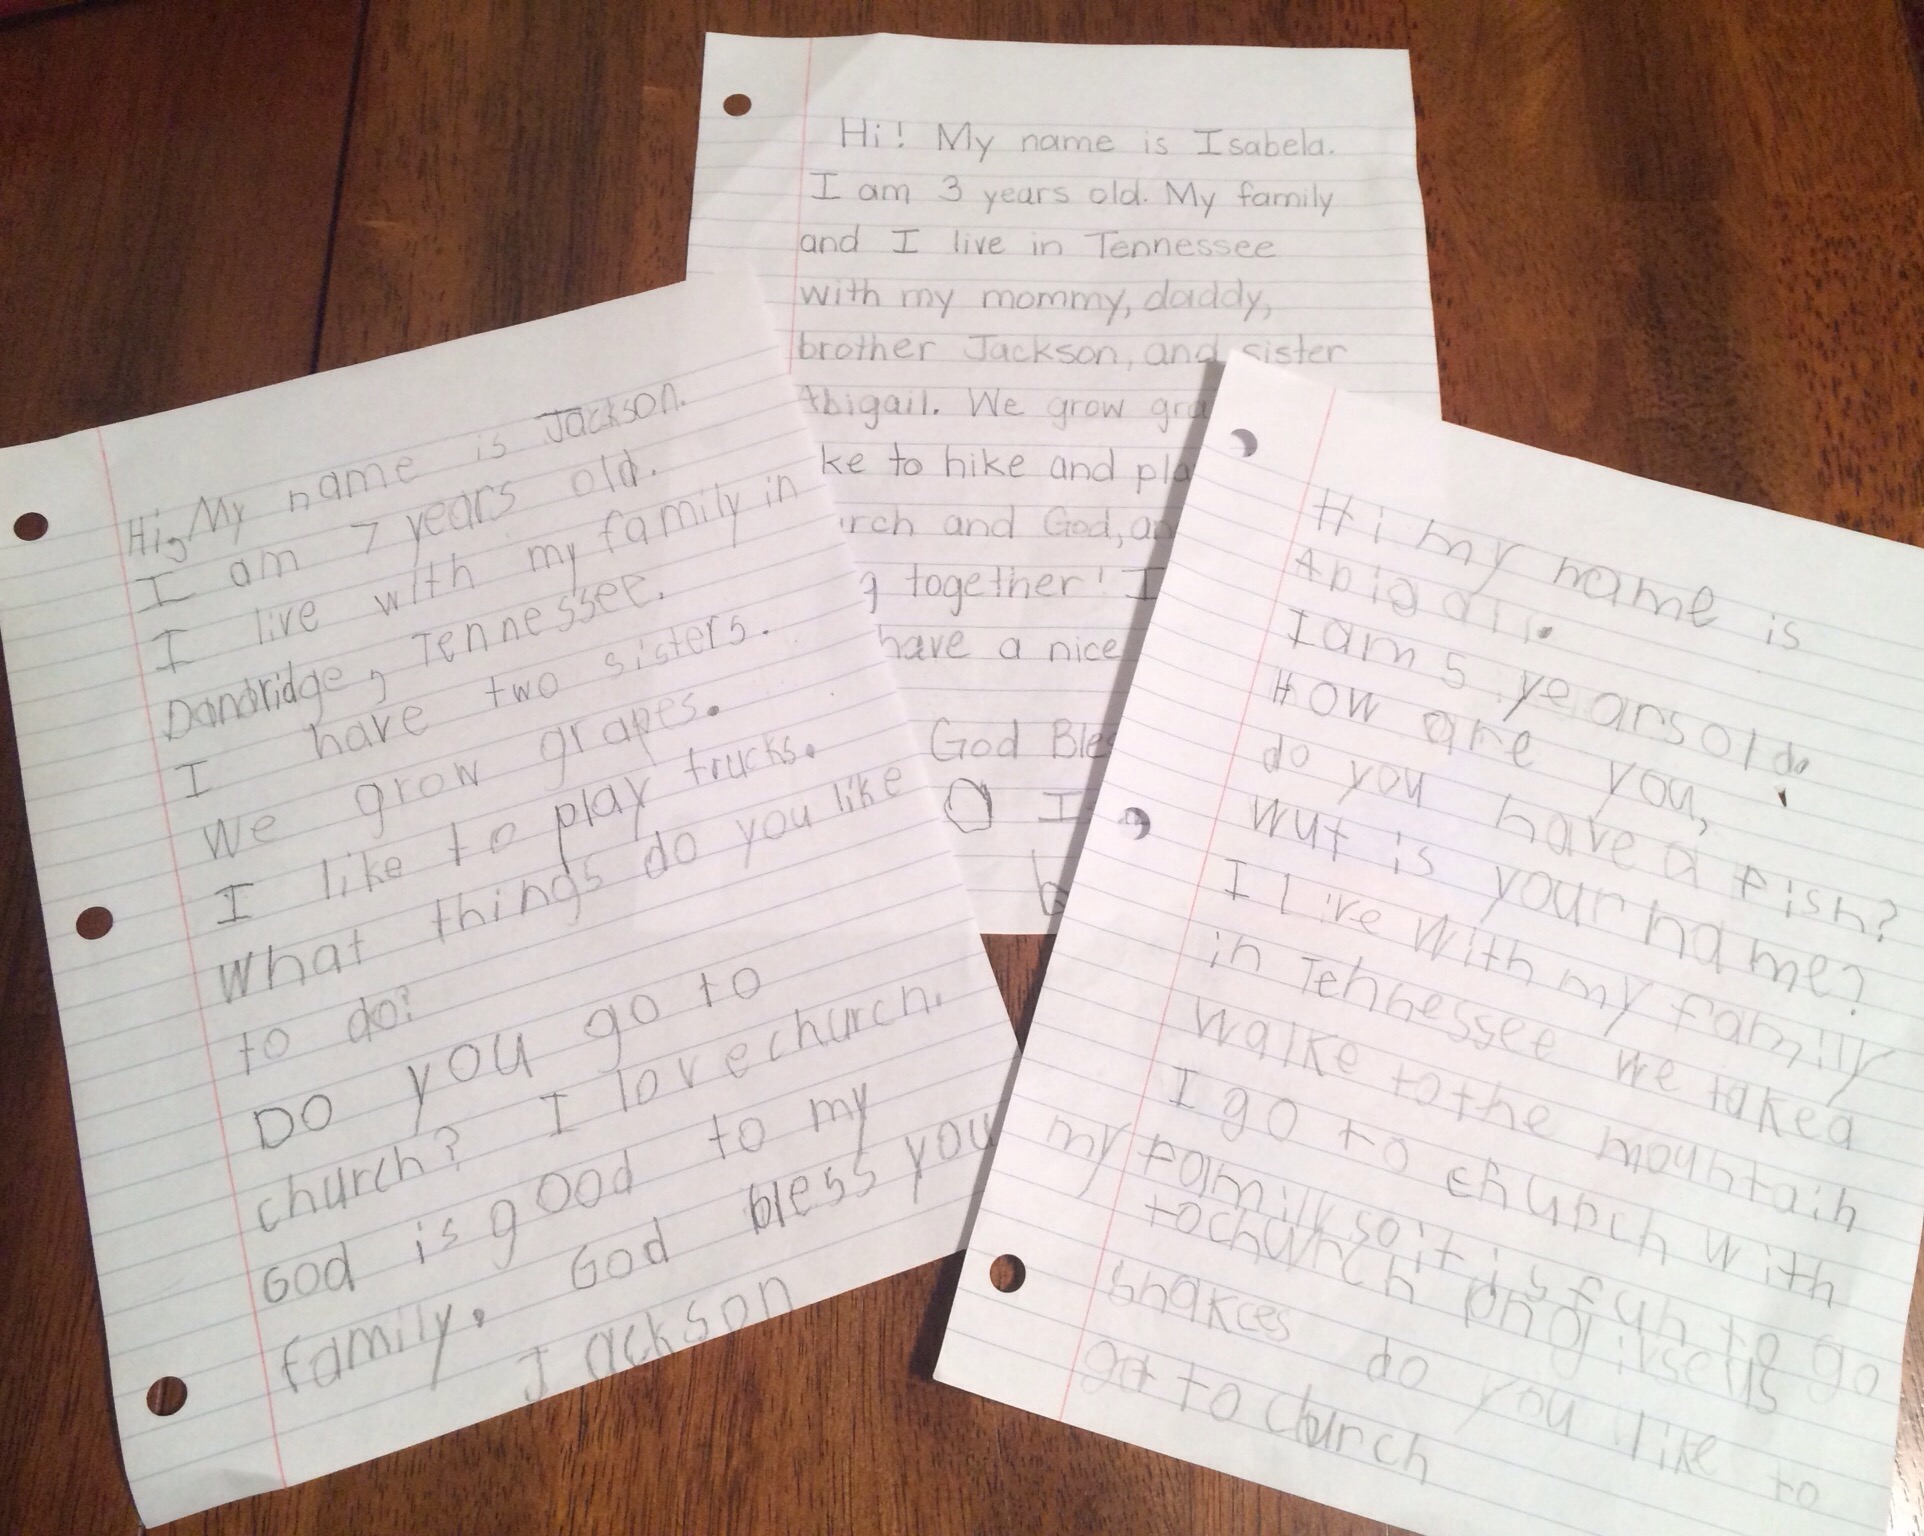 Hi! My name is Isabela.
I am 3 years old. My family
and I live in Tennessee
with my mommy, daddy,
brother Jackson, and sister
Abigail. We grow gra
ke to hike and pla
rch and God, an
g together! I
have a nice
God Bles
I
b
Hi, My name is Jackson.
I am 7 years old.
I live with my family in
Dandridge, Tennessee.
I have two sisters.
We grow grapes.
I like to play trucks.
What things do you like
to do?
Do you go to
church? I love church.
God is good to my
family. God bless you
Jackson
Hi my name is
Abigail.
I am 5 years old.
How are you,
do you have a fish?
Wut is your name?
I Live with my family
in Tennessee we take a
walke to the mountain
I go to church with
my family so it is fun to go
to church
snakces do you like to
go to church